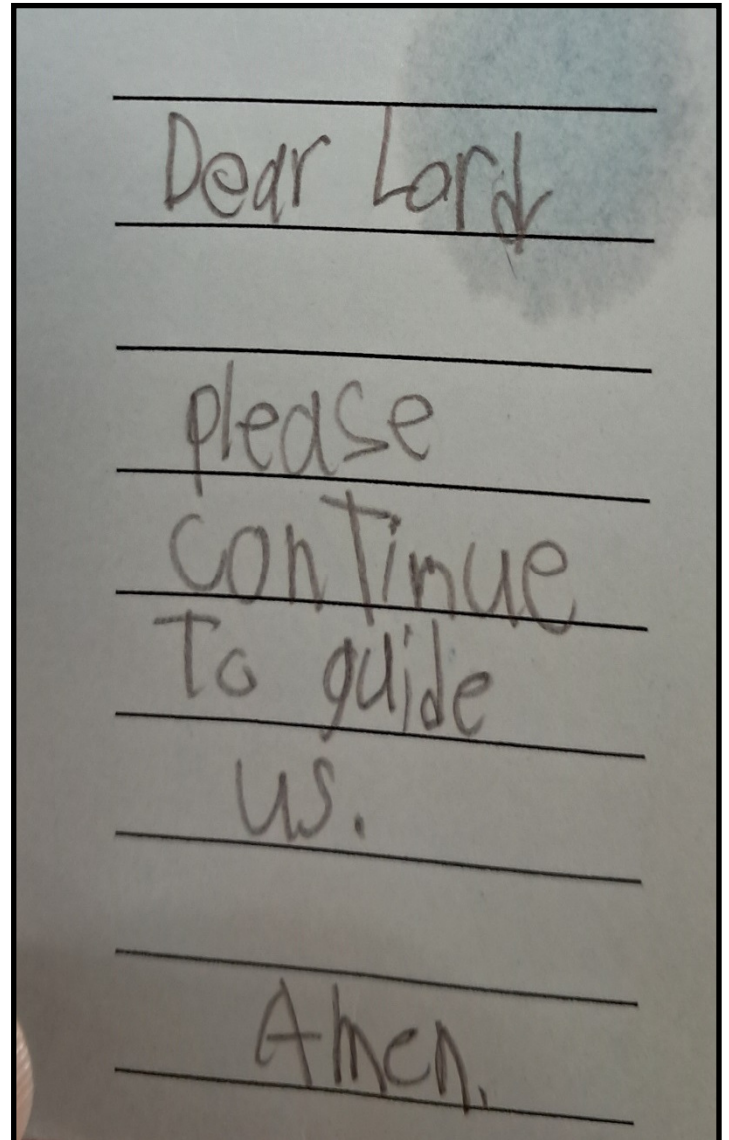 Dear Lord
please
continue
To guide
us.
Amen.